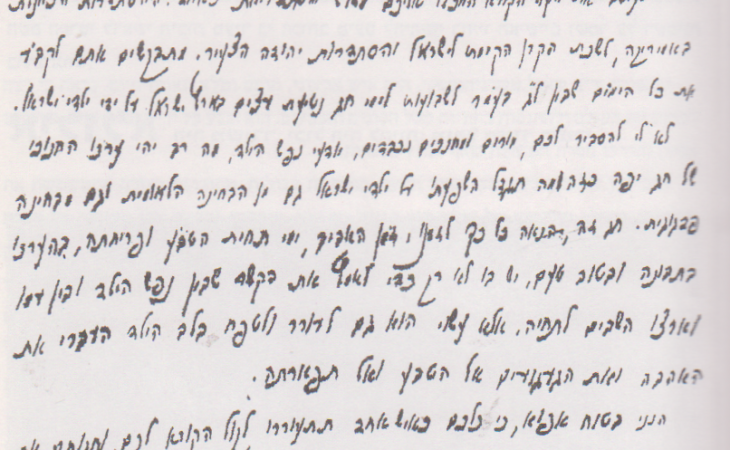 באמריקה, לשכת הקרן הקימת לישראל והסתדרות יהודה הצעיר. מתבקשים אתם לקבוע
את כל הימים שבין ל"ג בעמר לשבועות לימי חג נטיעת עצים בארץ ישראל על ידי ילדי ישראל.
לא לי להסביר לכם, מורים ומחנכים נכבדים, יודעי נפש הילד, מה רב יהי ערכו החנוכי
של חג יפה כזה ומה תגדל השפעתו על ילדי ישראל גם מן הבחינה הלאומית וגם מבחינה
פדגוגית. חג זה, הנאה כל כך לזמנו, זמן האביב, ימי תחית הטבע ופריחתה, בהערכו
בתבונה ובטוב טעם, יש בו לא רק כדי לאמץ את הקשר שבין נפש הילד ובין עמו
וארצו השבים לתחיה, אלא עשוי הוא גם לעורר ולטפח בלב הילד העברי את
האהבה ואת הגעגועים אל הטבע ואל תפארתה.
הנני בטוח אפוא, כי כלכם כאיש אחד תתעוררו לקול הקורא לכם